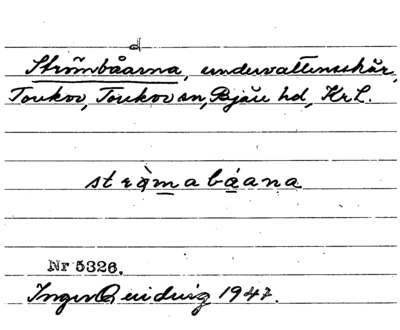 d
Strömbåarna, undervattensskär,
Torhov, Torhov sn, Bjäre hd, Kr L.
strɑ̀mabáana
Nr 5326.
Inger 1947.